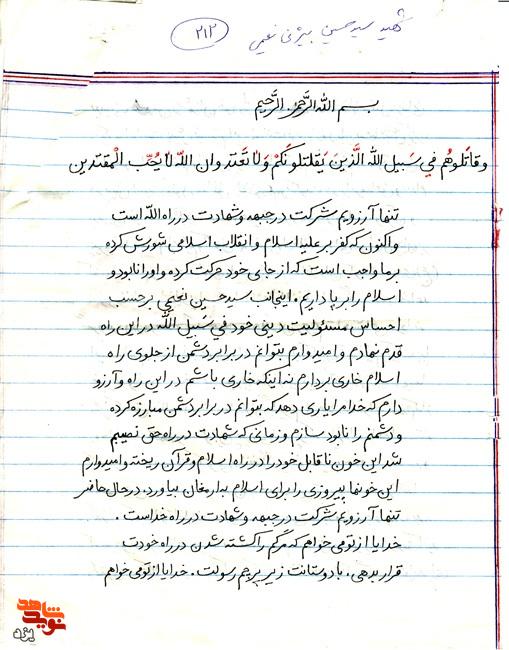 شهید سید حسین بیژنی نعیمی
۲۱۲
بسم الله الرحمن الرحیم
وقاتلوهم في سَبیل الله الَّذینَ یَقلتلونَکُمْ وَلا تَعتَدوان اللّهَ لا یُحبّ الْمقتدین
تنها آرزویم شرکت در جبهه وشهادت در راه الله است
واکنون که کفر بر علیه اسلام وانقلاب اسلامی شورش کرده
برما واجب است که از جای خود حرکت کرده و اورا نابود و
اسلام را بر پا داریم. اینجانب سید حسین نعیمی برحسب
احساس مسئولیت دینی خود في سبیل الله در این راه
قدم نهادم و امیدوارم بتوانم در برابر دشمن از جلوی راه
اسلام خاری بردارم نه اینکه خاری باشم در این راه و آرزو
دارم که خدا مرا یاری دهد که بتوانم در برابر دشمن مبارزه کرده
و دشمنم را نابود سازم و زمانی که شهادت در راه حق نصیبم
شد این خون ناقابل خود را در راه اسلام و قرآن ریخته و امیدوارم
این خونها پیروزی را برای اسلام به ارمغان بیاورد. در حال حاضر
تنها آرزویم شرکت در جبهه و شهادت در راه خداست.
خدایا از تو می خواهم که مرگم را کشته شدن در راه خودت
قرار بدهی. با دوستانت زیر پرچم رسولت. خدایا از تو می خواهم
نوید شاهد
یزد